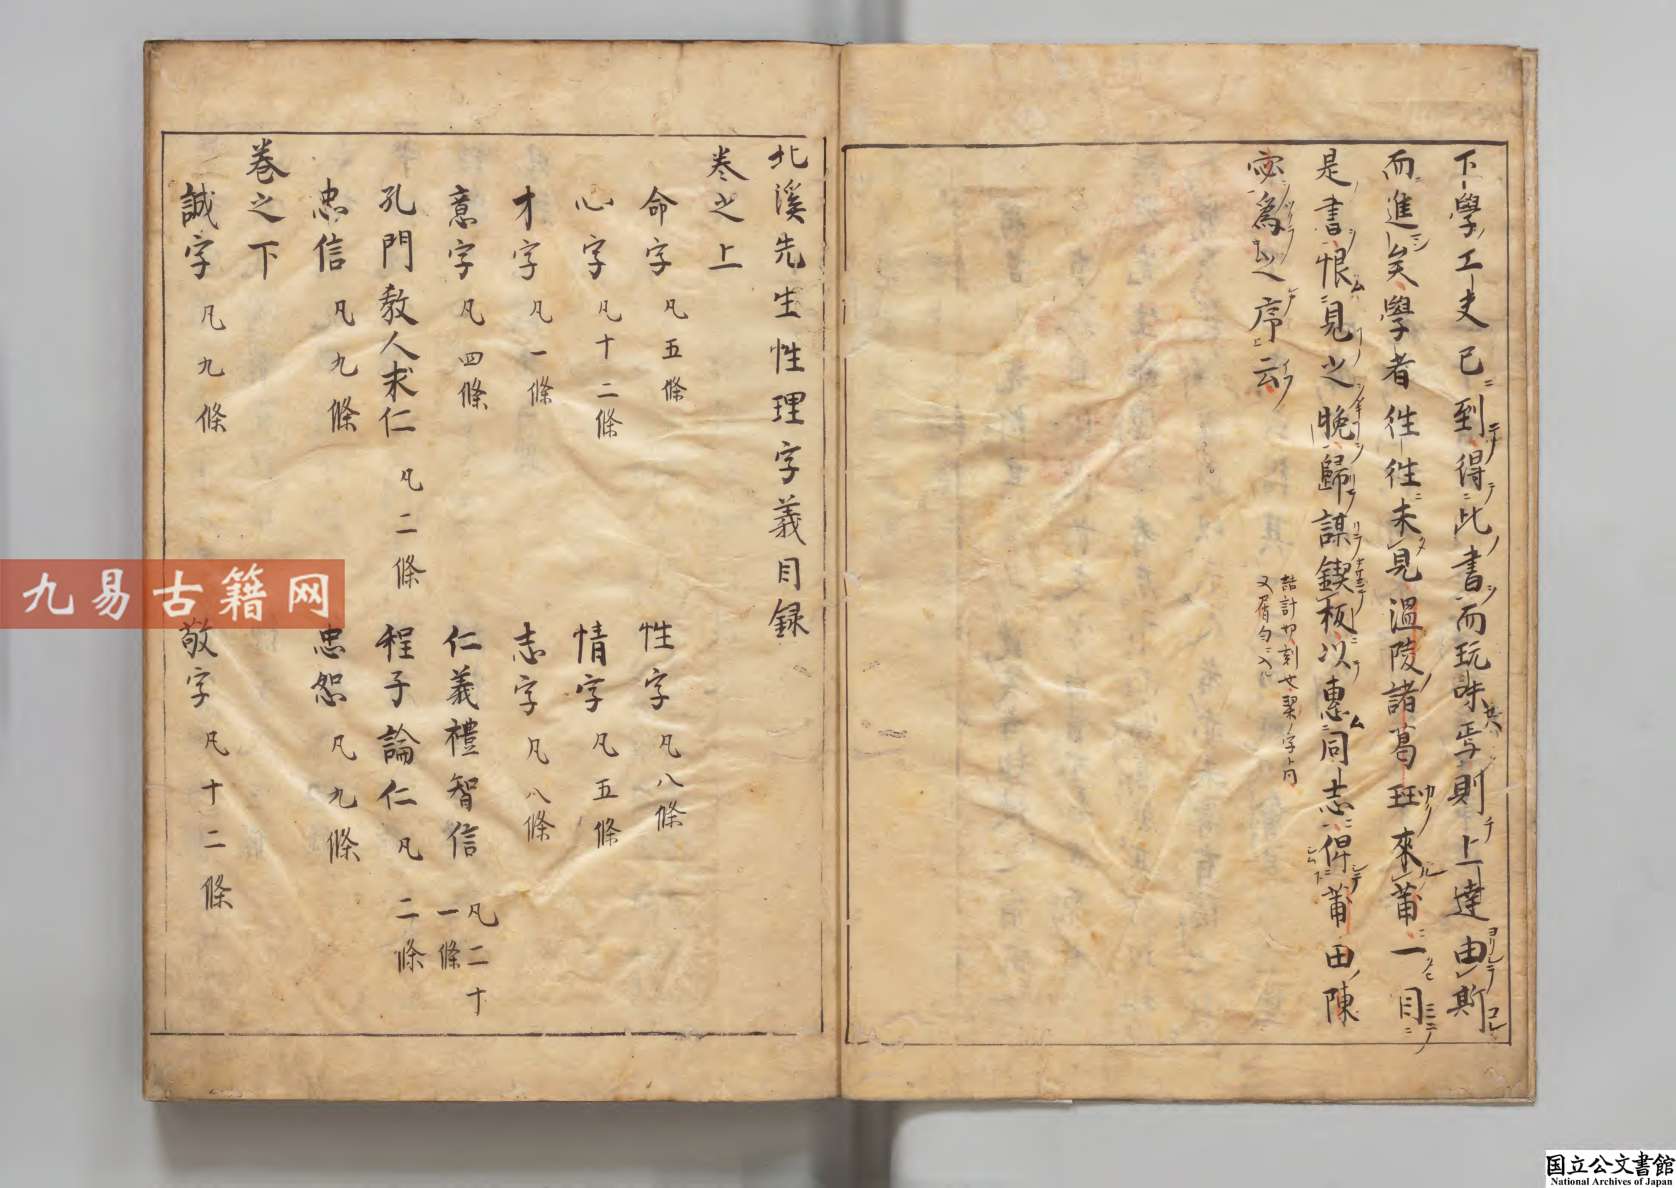 下學工夫已到得此書而玩味焉則上達由斯
而進矣學者徃徃未見溫陵諸葛珏來莆一目
是書恨見之晚歸謀鍥板以惠同志俾莆田陳
宓爲之序云
詰計切刻也契ノ字ト同
北溪先生性理字義目録
卷之上
命字 凡五條 性字 凡八條
心字 凡十二條 情字 凡五條
才字 凡一條 志字 凡八條
意字 凡四條 仁義禮智信 凡二十一條
孔門教人求仁 凡二條 程子論仁 凡二條
忠信 凡九條 忠恕 凡九條
卷之下
誠字 凡九條 敬字 凡十二條
九易古籍网
国立公文書館
National Archives of Japan